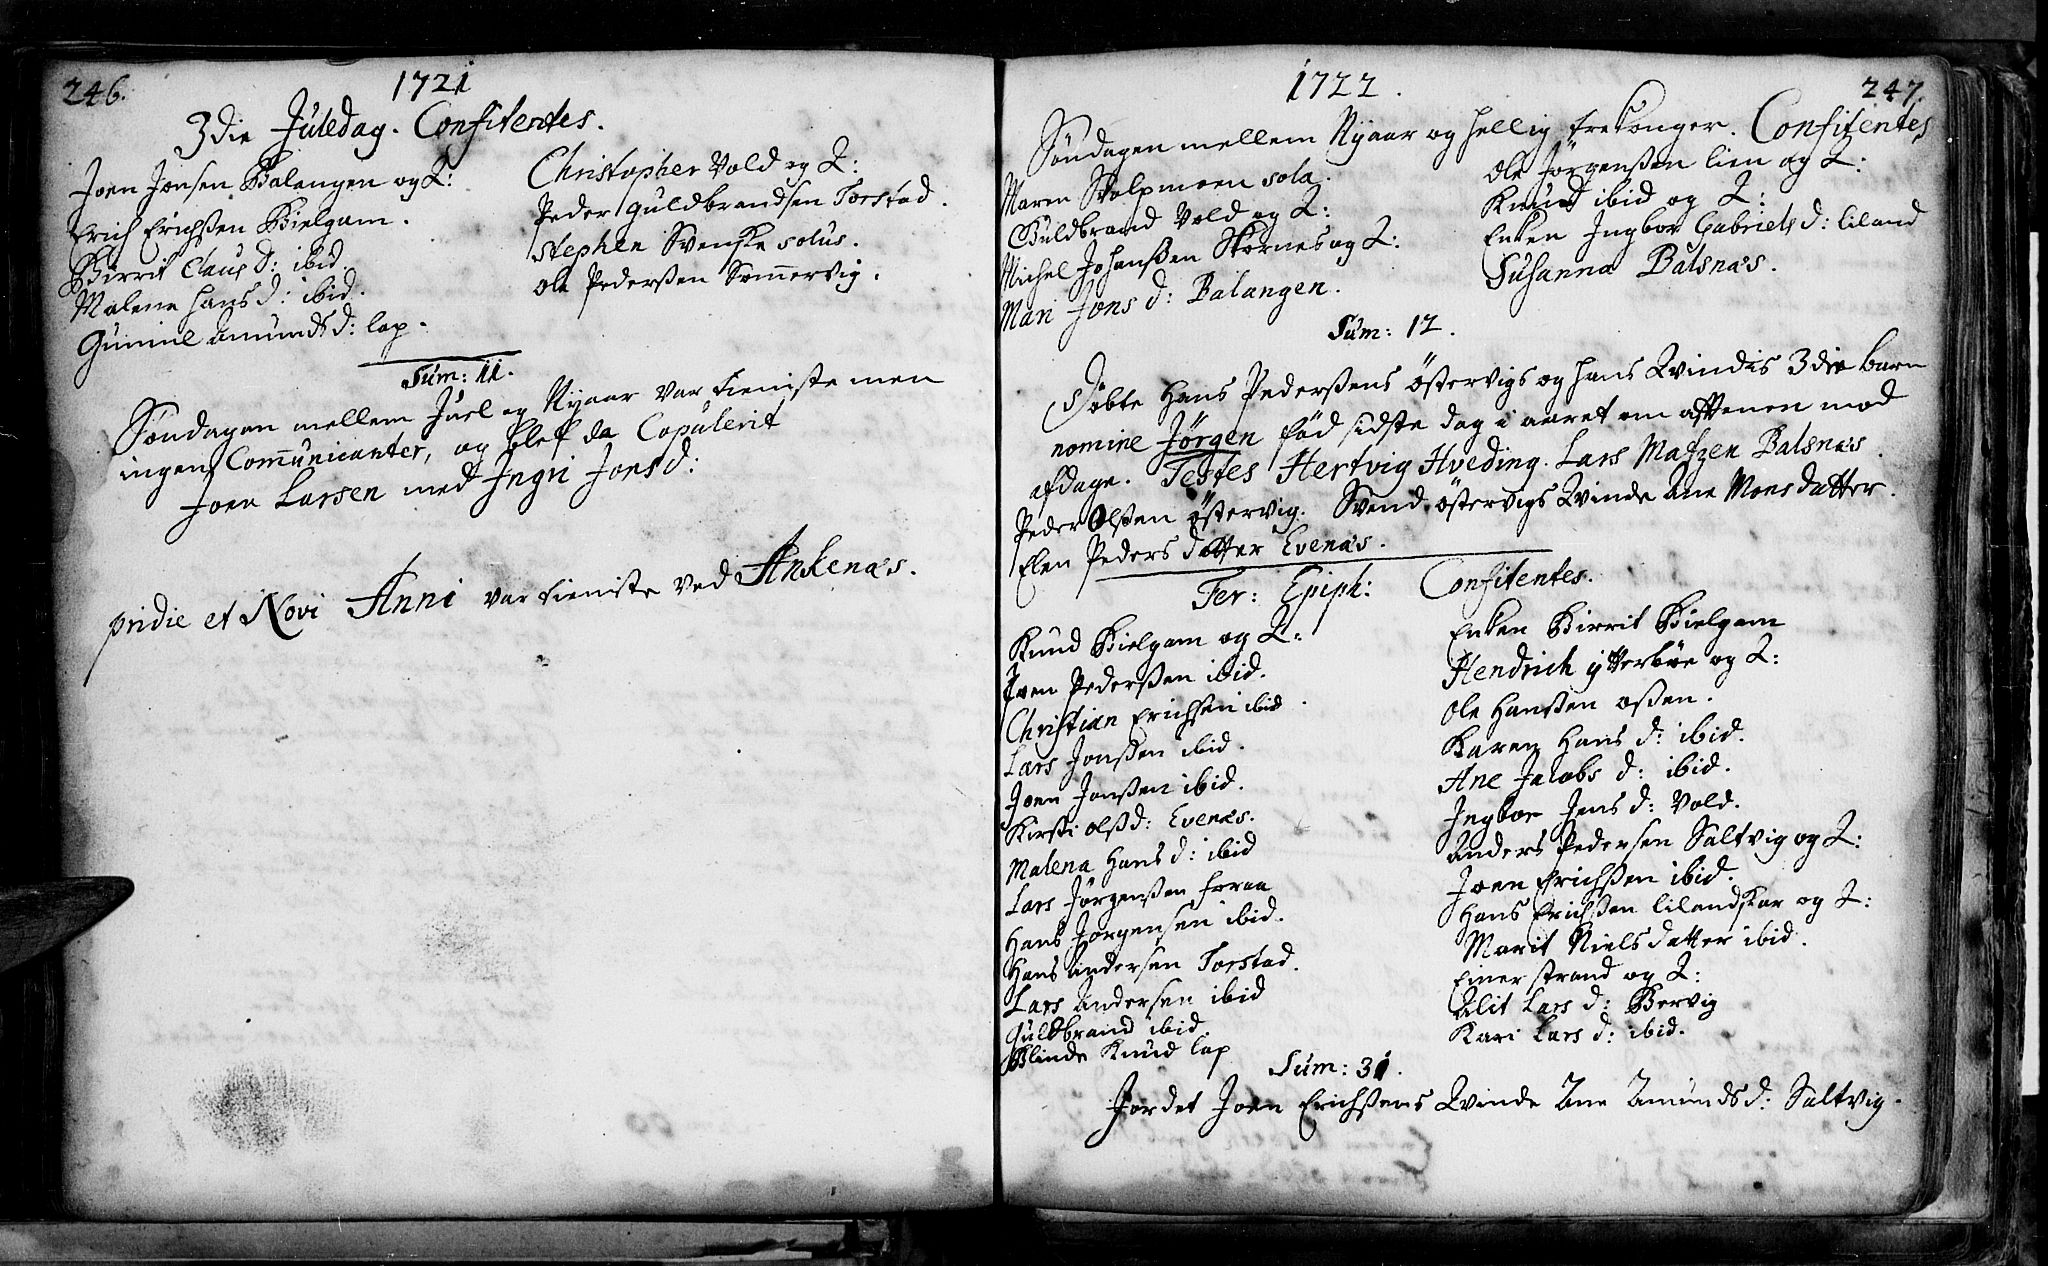 246.
1721
3die Juledag. Confitentes.
Joen Jonsen Balangen og Q:
Erich Erichßen Bielgam.
Birrit Claus D: ibid.
Malena Hans d: ibid.
Gunnil Amunds d: lap.
Christopher Vold og Q:
Peder Guldbrandsen Torstad.
Stephen Svenske solus.
Ole Pederßen Sommervig.
Sum: 11.
Søndagen mellem Juel og Nyaar var tieniste men
ingen Comunicanter, og blef da Copulerit
Joen Larsen med Ingri Jons d:
pridie et Novi Anni var tieniste ved Ankenæs.
1722.
247.
Søndagen mellem Nyaar og hellig trekonger. Confitentes
Maren Stolpmoen sola.
Guldbrand Vold og Q:
Michel Johanßen Skornes og Q:
Mari Jons d: Balangen.
Ole Jørgenßen lien og Q:
Knud ibid og Q:
Enken Ingbor Gabriels d: liland
Susanna Balsnæs.
Sum: 12.
Døbte Hans Pederßens Østervigs og hans Qvindis 3die barn
nomine Jørgen fød sidste dag i aaret om aftenen mod
afdage. Testes Hertvig Hveding. Lars Matzen Balsnæs.
Peder Olßen Østervig. Svend Østervigs Qvinde Ane Monsdatter.
Elen Peders datter Evenæs.
Fer: Epiph: Confitentes.
Knud Bielgam og Q:
Joen Pederßen ibid.
Christian Erichsen ibid.
Lars Jonßen ibid.
Joen Jonßen ibid.
Kirsti Olß d: Evenæs.
Malena Hans d: ibid
Lars Jørgenßen foraa
Hans Jørgensen ibid.
Hans Andersen Torstad.
Lars Andersen ibid
Guldbrand ibid.
Blinde Knud lap
Enken Birrit Bielgam
Hendrich ytterbøe og Q:
Ole Hanßen oßen.
Karen Hans d: ibid.
Ane Jacobs d: ibid.
Ingbor Jens d: Vold.
Anders Pedersen Saltvig og Q:
Joen Erichßen ibid.
Hans Erichßen lilandskar og Q:
Marit Niels datter ibid.
Einer strand og Q:
Alit Lars d: Bervig
Kari Lars d: ibid.
Sum: 31.
Jordet Joen Erichßens Qvinde Ane Amunds d: Saltvig.